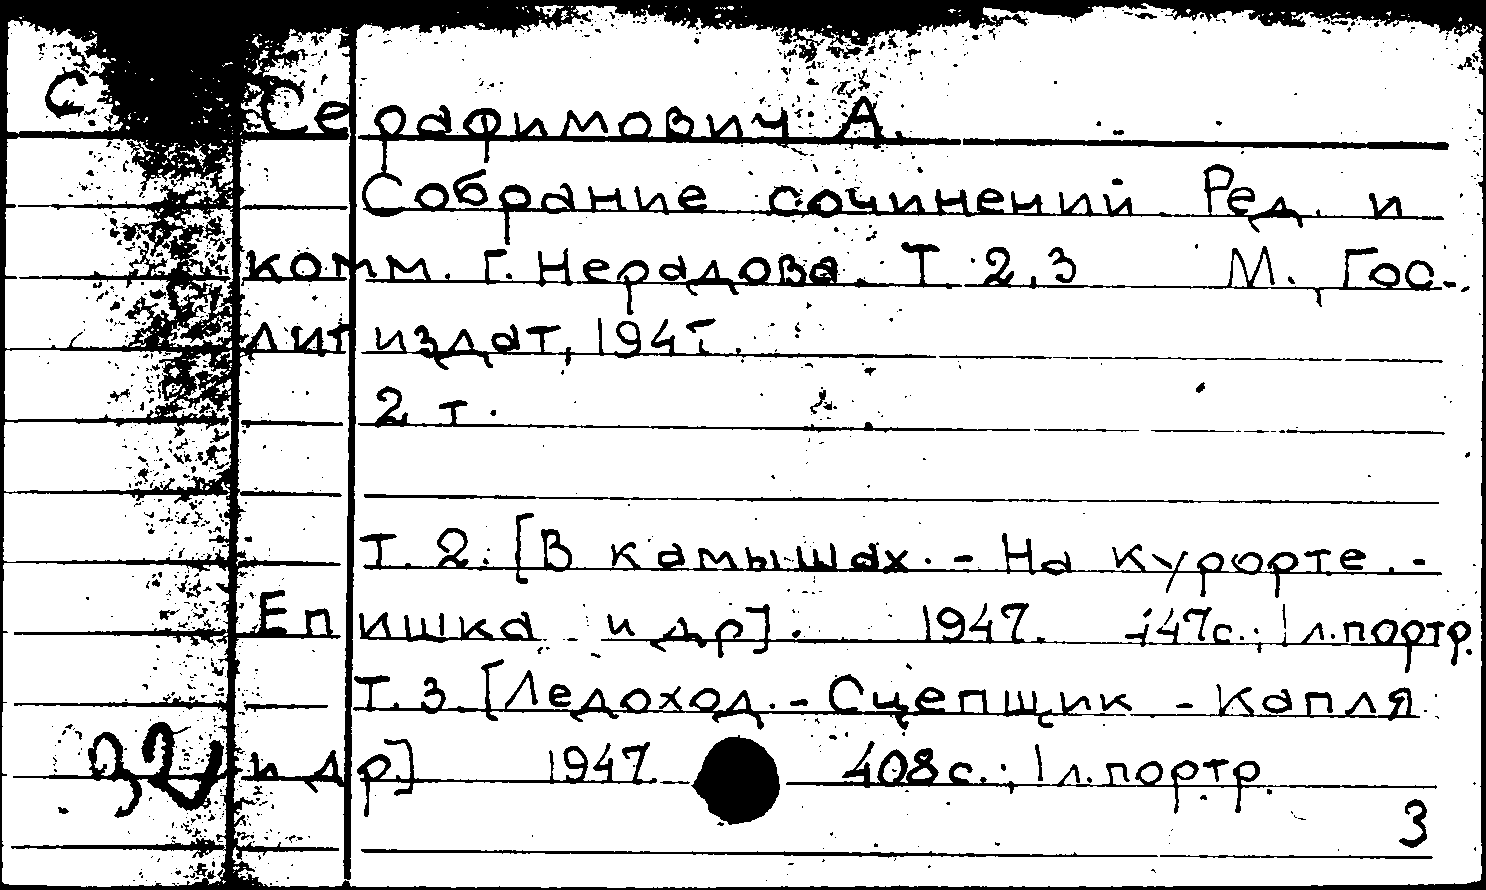 С Серафимович А.
Собрание сочинений. Ред. и
комм. Г. Нерадова. Т. 2,3 М., Гос-
литиздат, 1947.
2 т.
Т. 2. [В камышах. - На курорте. -
Епишка и др]. 1947. 447с.; 1 л. портр.
Т. 3. [Ледоход. - Сцепщик - Капля
и др] 1947. 408с.; 1 л. портр.
3